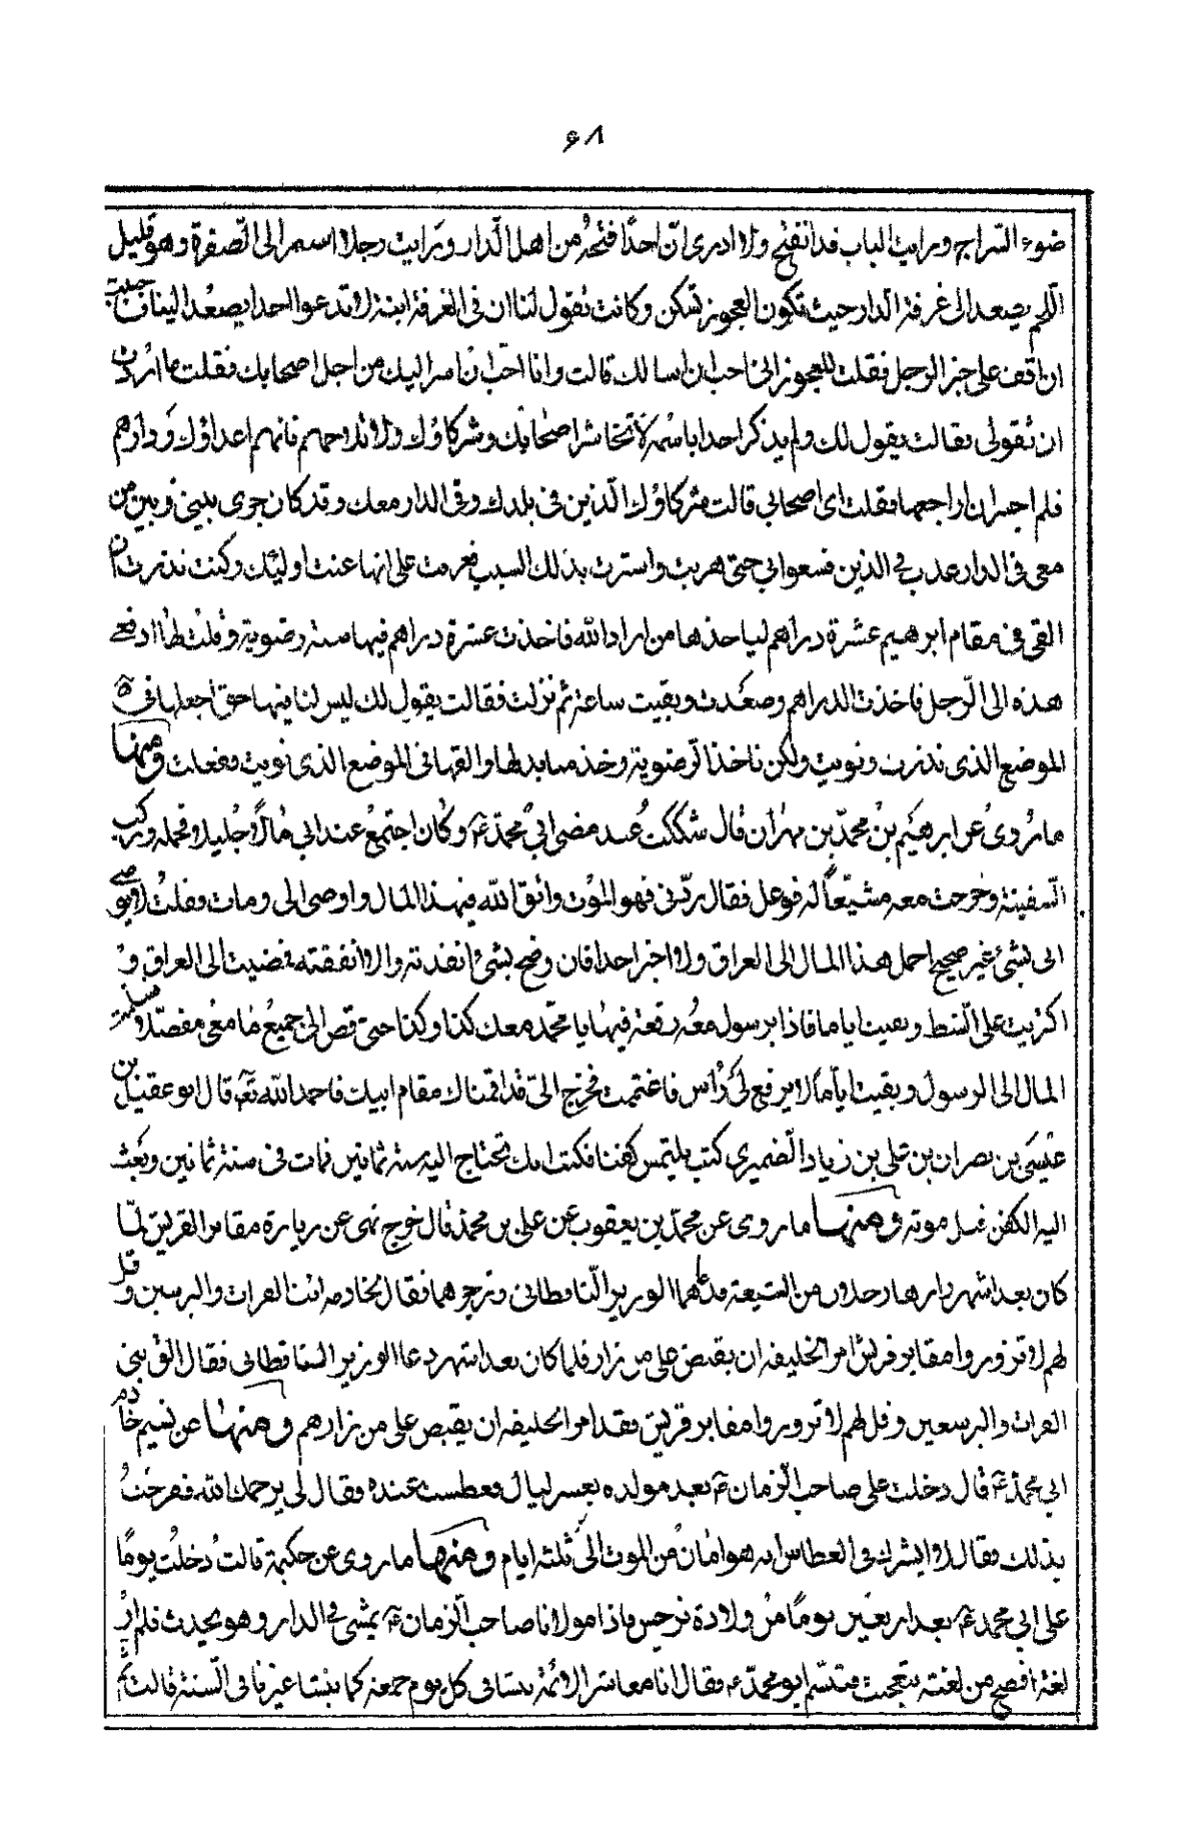 ۶۸
ضوء السراج ورايت الباب قد انفتح ولا ادرى ان احدًا فتحه من اهل الدار ورايت رجلا اسمر الى الصفرة وهو قليل
اللحم يصعد الى غرفة الدار حيث تكون العجوز تسكن وكانت تقول لنا ان فى الغرفة ابنة لا تدعوا احدا يصعد اليها فاحببت
ان اقف على خبر الرجل فقلت للعجوز انى احب ان اسالك قالت وانا احب ان اسر اليك من اجل اصحابك فقلت ما اردت
ان تقولى فقالت يقول لك ولم يذكر احدا باسمه لا تخاشن اصحابك وشركاؤك ولا تلاحهم فانهم اعداؤك ودارهم
فلم اجسر ان اراجعها فقلت اى اصحابى قالت شركاؤك الذين فى بلدك وفى الدار معك وقد كان جرى بينى وبين من
معى فى الدار عتب فى الدين فسعوا بى حتى هربت واستترت بذلك السبب فعرفت على انها عنت اولئك وكنت نذرت ان
القى فى مقام ابرهيم عشرة دراهم لياخذها من اراد الله فاخذت عشرة دراهم فيها ستة رضوية وقلت لها ادفعى
هذه الى الرجل فاخذت الدراهم وصعدت وبقيت ساعة ثم نزلت فقالت يقول لك ليس لنا فيها حق اجعلها فى
الموضع الذى نذرت ونويت ولكن ناخذ الرضوية وخذ منا بدلها والقها فى الموضع الذى نويت ففعلت ومنها
ما روى عن ابرهيم بن محمد بن مهران قال شككت عند مضى ابى محمد ع وكان اجتمع عند ابى مالا جليلا فحمله وركب
السفينة وخرجت معه مشيعًا له فوعك فقال ردنى فهو الموت واتق الله فى هذا المال واوصى الى ومات وقلت لا يوصى
ابى بشئ غير صحيح احمل هذا المال الى العراق ولا اخبر احدا فان وضح بشئ انفذته والا انفقته فمضيت الى العراق و
اكتريت على الشط وبقيت اياما فاذا برسول معه رقعة فيها يا محمد معك كذا وكذا حتى قص الى جميع ما معى مفصلا وسلمت
المال الى الرسول وبقيت ايامًا لا يرفع لى راس فاغتممت فخرج الى قد اقمناك مقام ابيك فاحمد الله تع قال ابو عقيل بن
عيسى بن نصر ان بن على بن زياد الضميرى كتب يلتمس كفنا فكتب انك تحتاج اليه سنة ثمانين فمات فى سنة ثمانين وبعث
اليه الكفن قبل موته ومنها ما روى عن محمد بن يعقوب عن على بن محمد قال خرج نهى عن زيارة مقابر القريش لما
كان بعد اشهر زارها رجلان من الشيعة فدعاهما الوزير الناقطانى وزجرهما فقال لخادمه الق بنى الفرات والبرسيين وقل
لهم لا تزوروا مقابر قريش امر الخليفة ان يقبض على من زار فلما كان بعد اشهر دعا الوزير الشاقطانى فقال الق بنى
الفرات والبرسعين وقل لهم لا تزوروا مقابر قريش فقد امر الخليفة ان يقبض على من زارهم ومنها عن نسيم خادم
ابى محمد ع قال دخلت على صاحب الزمان ع بعد مولده بعشر ليال فعطست عنده فقال لى يرحمك الله ففرحت
بذلك فقال الا ابشرك فى العطاس انه هو امان من الموت الى ثلثة ايام ومنها ما روى عن حكيمة قالت دخلت يومًا
على ابى محمد ع بعد اربعين يومًا من ولادة نرجس فاذا مولانا صاحب الزمان ع يمشى فى الدار وهو يحدث فلم ار
لغة افصح من لغته فتعجبت فتبسم ابو محمد ع فقال انا معاشر الائمة ننشا فى كل يوم جمعة كما ينشا غيرنا فى السنة قالت ثم